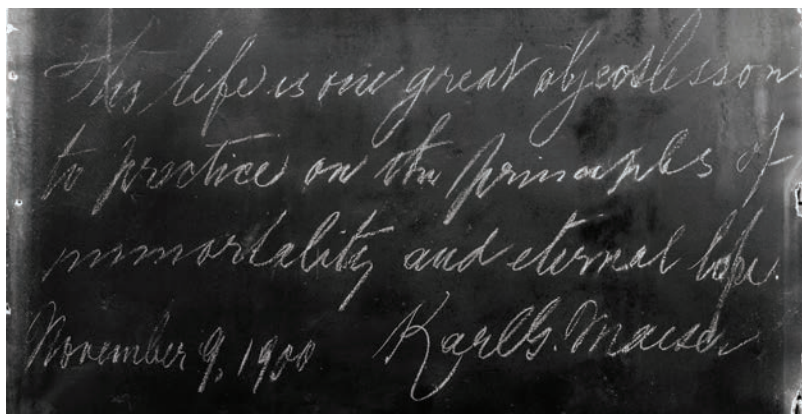 This life is one great objectlesson
to practice on the principles of
immortality and eternal life.
November 9, 1900 Karl G. Maeser